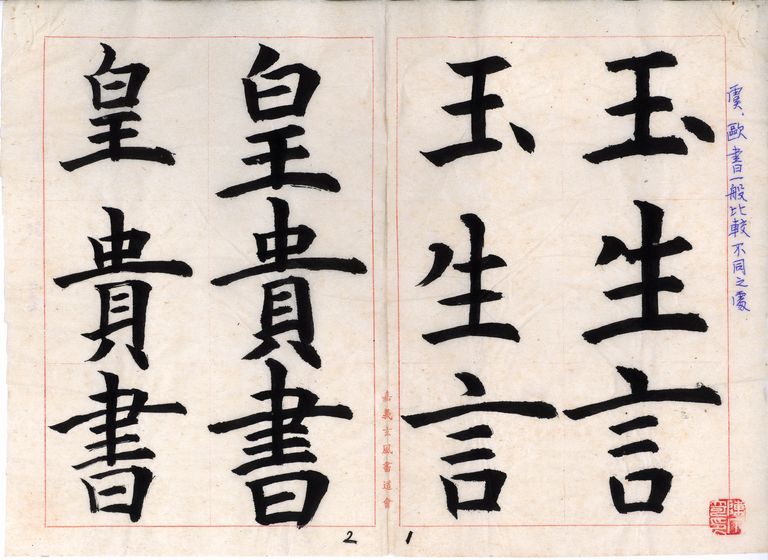 虞、歐書一般比較不同之處
玉生言
玉生言
嘉義玄風書道會
皇貴書
皇貴書
1
2